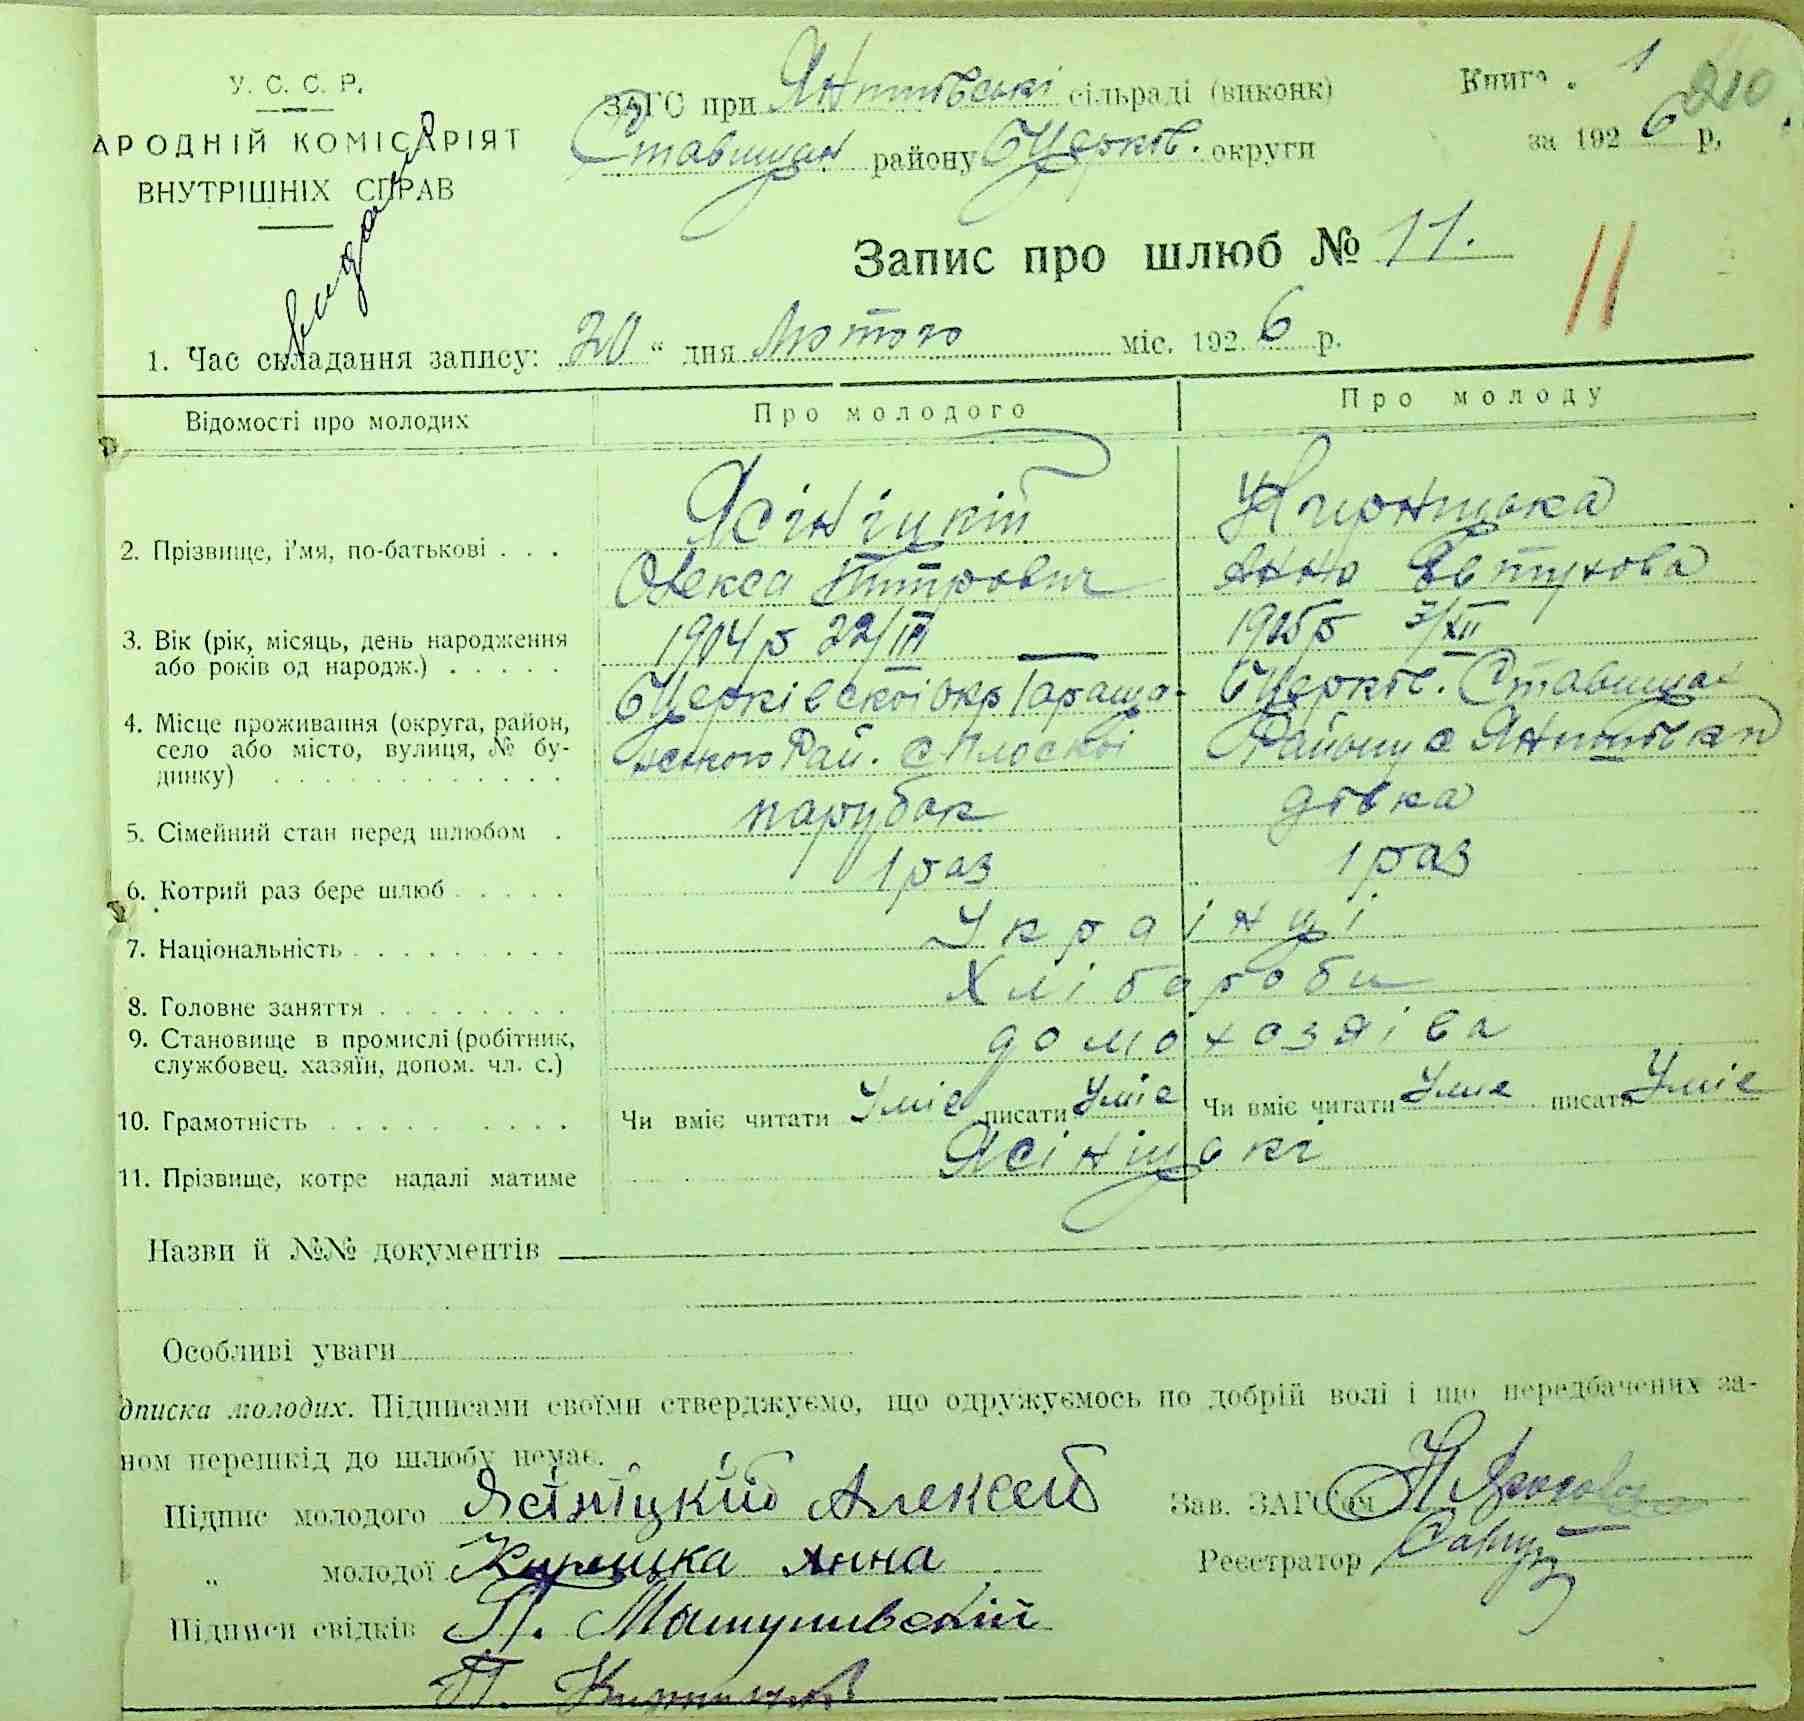 У. С. С. Р.
АРОДНІЙ КОМІСАРІЯТ
ВНУТРІШНІХ СПРАВ
видана
ЗАГС при Янишівські сільраді (виконк)
Ставищан району БЦерків. округи
Книга 1
210
за 1926 р,
Запис про шлюб № 11.
11
1. Час складання запису: 20 " дня Лютого міс. 1926 р.
Відомості про молодих Про молодого Про молоду
2. Прізвище, і'мя, по-батькові . . . Ясініцкій
Олекса Питрович Анна Євтухова
3. Вік (рік, місяць, день народження 1904р 22/III 1905р 7/XII
або років од народж.) . . . . .
4. Місце проживання (округа, район, БЦерківскоі окр Тараща- БЦерків. Ставищан
село або місто, вулиця, № бу- нського Рай. с Плоскоі Району с
динку) . . . . . . . . . . .
5. Сімейний стан перед шлюбом . парубок дівка
6. Котрий раз бере шлюб . . . . . 1 раз 1 раз
7. Національність . . . . . . . . . Украінці
8. Головне заняття . . . . . . . . Хлібороби
9. Становище в промислі (робітник, домохозяіва
службовец. хазяїн, допом. чл. с.)
10. Грамотність . . . . . . . . . Чи вміє читати Уміє писати Уміє Чи вміє читати Уміє писати Уміє
11. Прізвище, котре надалі матиме Ясініцькі
Назви й №№ документів
Особливі уваги
дписка молодих. Підписами своїми стверджуємо, що одружуємось по добрій волі і що передбачених за-
ном перешкід до шлюбу немає.
Підпис молодого Ясініцкий Алексей Зав. ЗАГС'ом
" молодої Анна Реєстратор
Підписи свідків П.
П.